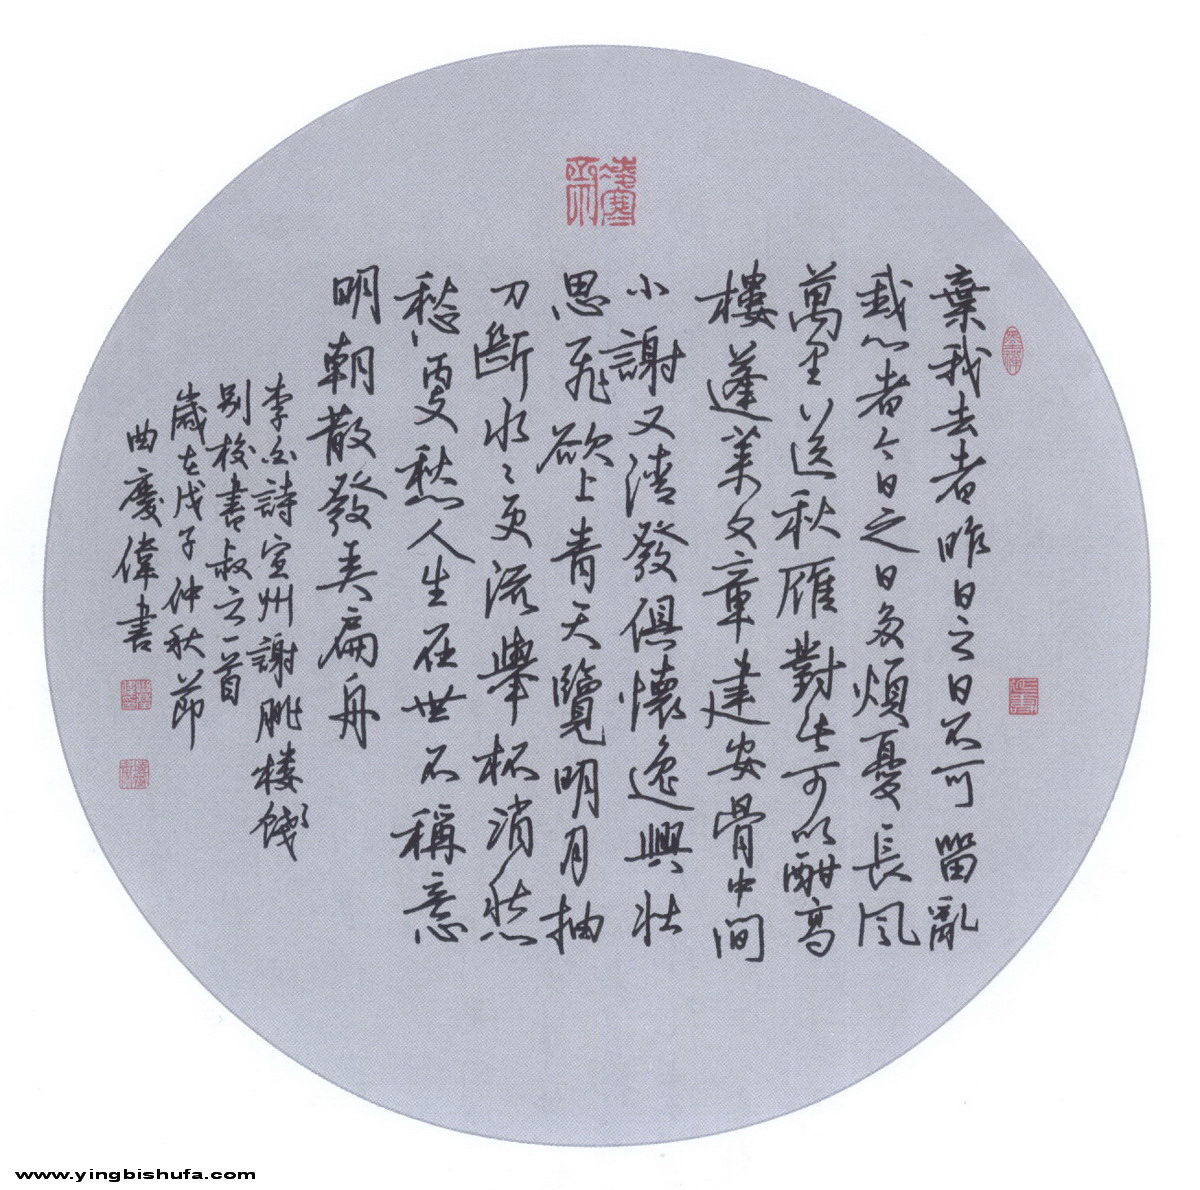 棄我去者昨日之日不可留亂
我心者今日之日多煩憂長風
萬里送秋雁對此可以酣高
樓蓬萊文章建安骨中間
小謝又清發俱懷逸興壯
思飛欲上青天覽明月抽
刀斷水〻更流舉杯消愁
愁更愁人生在世不稱意
明朝散發弄扁舟
李白詩宣州謝朓楼餞
别校書叔云一首
歲在戊子仲秋節
曲慶偉書
www.yingbishufa.com